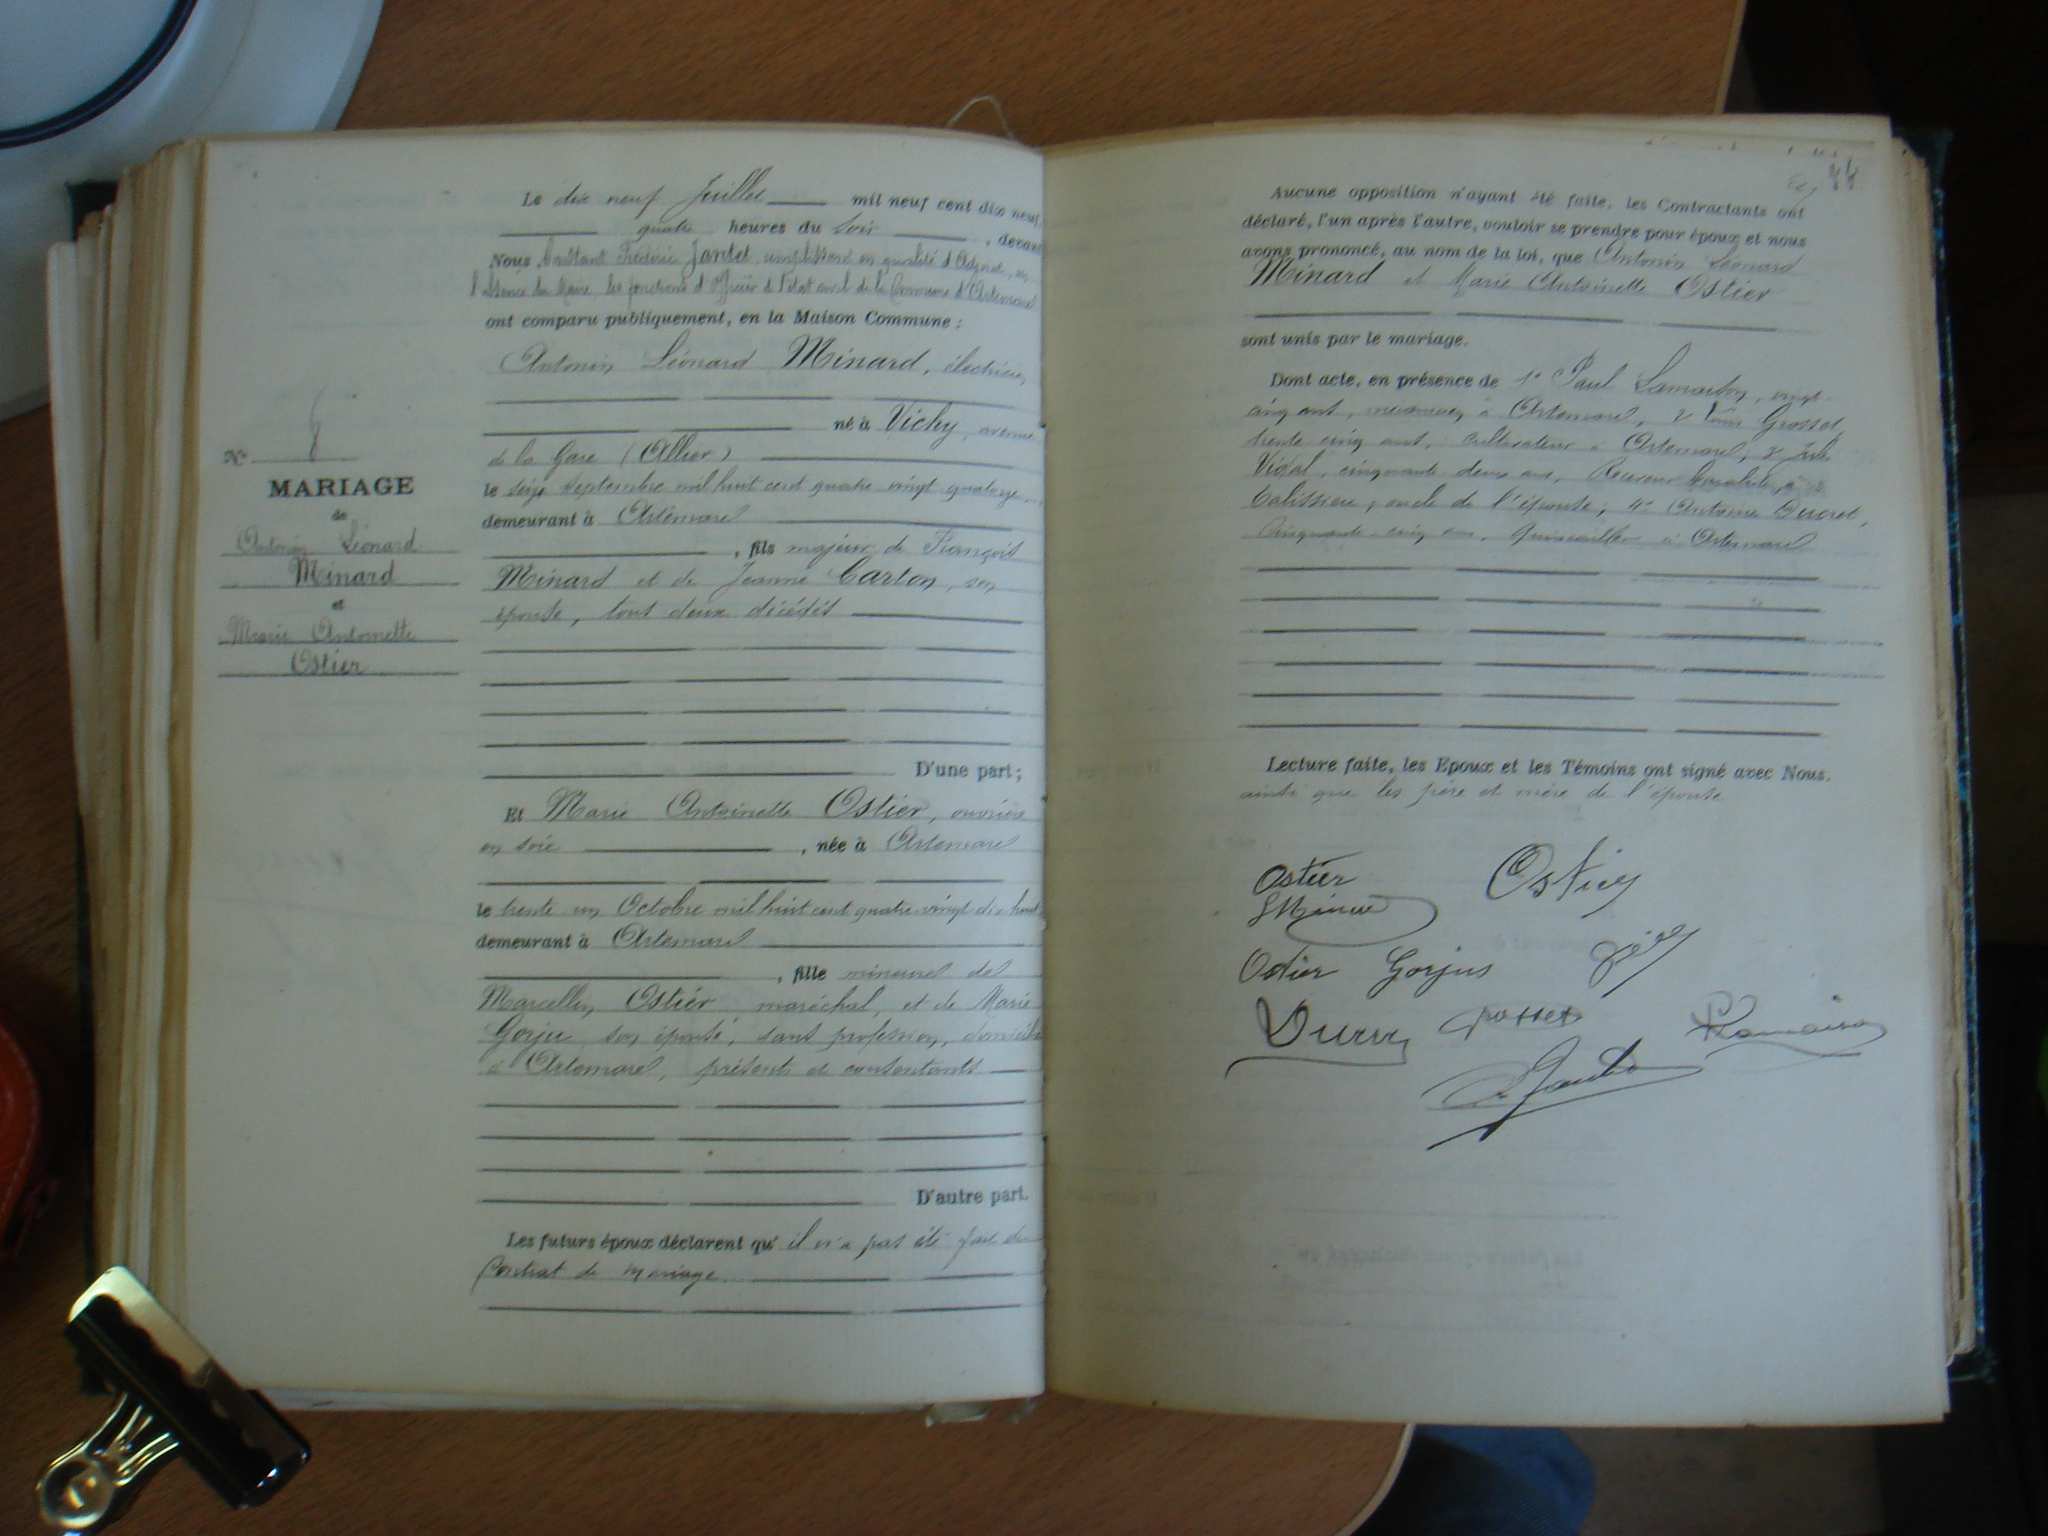 Le dix neuf Juillet mil neuf cent dix neuf,
quatre heures du soir, devant
Nous, Frédéric Jantet, remplissant en qualité d'Adjoint, en
l'absence du Maire, les fonctions d'Officier de l'état civil de la Commune d'Artemare
ont comparu publiquement, en la Maison Commune :
Antonin Léonard Minard, électricien,
né à Vichy, avenue
de la Gare (Allier)
le seize septembre mil huit cent quatre vingt quatorze
demeurant à Artemare
, fils majeur de François
Minard et de Jeanne Carton, son
épouse, tout deux décédés
D'une part ;
Et Marie Antoinette Ostier, ouvrière
en soie, née à Artemare
le trente un Octobre mil huit cent quatre-vingt dix huit
demeurant à Artemare
, fille mineure de
Marcellin Ostier, maréchal, et de Marie
Gorju son épouse, sans profession, domiciliés
à Artemare, présents et consentants
D'autre part.
Les futurs époux déclarent qu'il n'a pas été fait de
Contrat de mariage.
N° 8
MARIAGE
de
Antonin Léonard
Minard
et
Marie Antoinette
Ostier
Aucune opposition n'ayant été faite, les Contractants ont
déclaré, l'un après l'autre, vouloir se prendre pour époux et nous
avons prononcé, au nom de la loi, que Antonin Léonard
Minard et Marie Antoinette Ostier
sont unis par le mariage.
Dont acte, en présence de 1° Paul vingt-
cinq ans, à Artemare, 2° Grosset,
trente cinq ans, cultivateur à Artemare, 3°
Vidal, cinquante deux ans, Receveur à
oncle de l'épouse ; 4° Antoine Ducret,
cinquante-cinq ans, Quincailler à Artemare
Lecture faite, les Epoux et les Témoins ont signé avec Nous.
ainsi que les père et mère de l'épouse
Ostier Ostier
Ostier Gorjus
Grosset